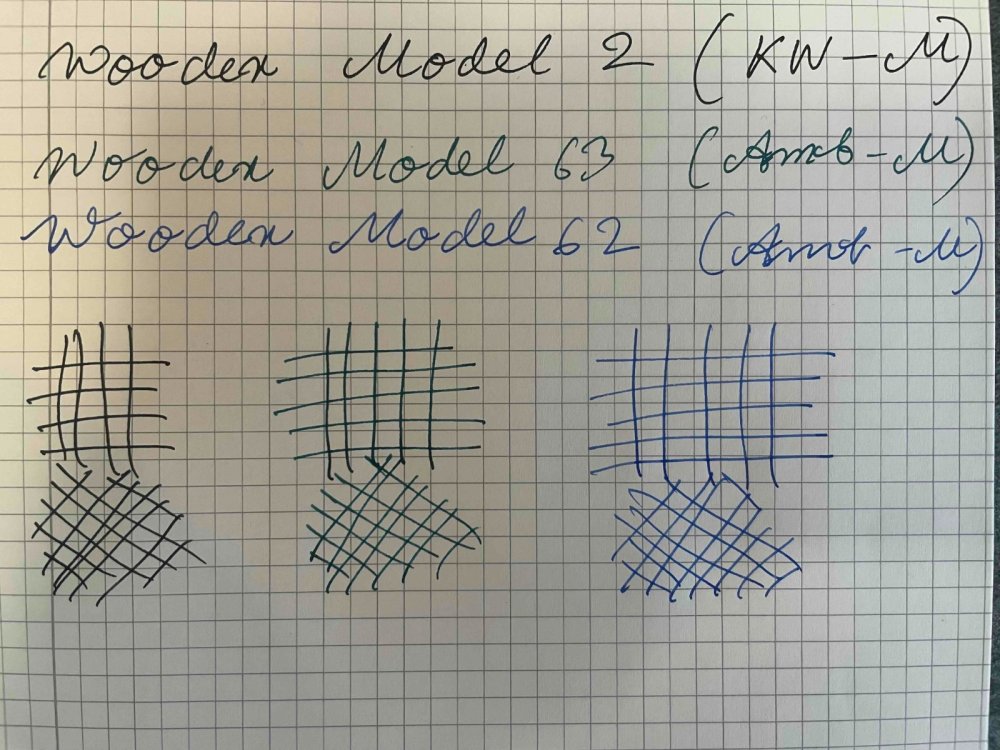 Woodex Model 2 (KW-M)
Woodex Model 63 (Amb-M)
Woodex Model 62 (Amb-M)